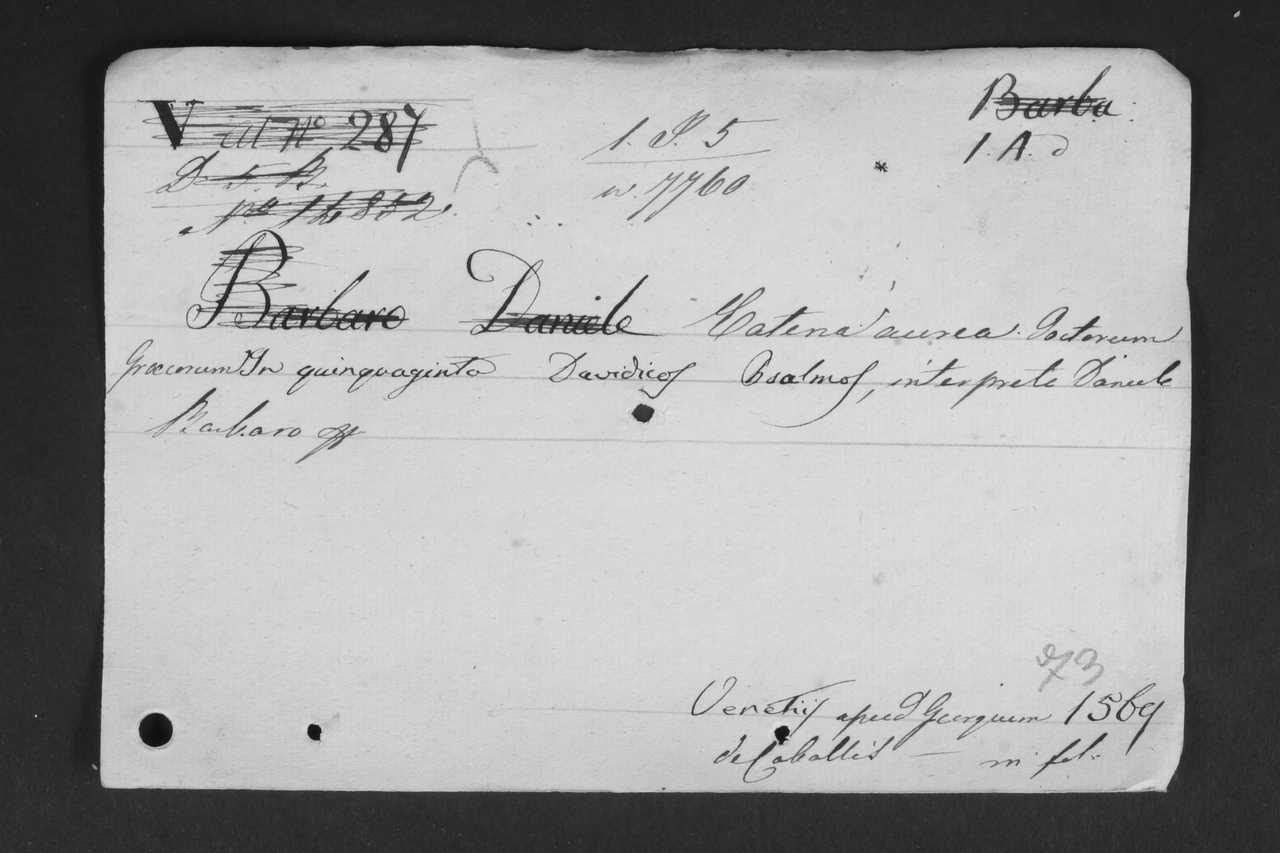 V al No 287
D 5 B.
No 14852.
1. P. 5
n. 7760
Barba
1. A.
Barbaro Daniele Catena aurea Doctorum
Græcorum In quinquaginta Davidicos Psalmos, interprete Daniele
Barbaro
73
Venetiis apud Georgium 1569
de Caballis — in fol.